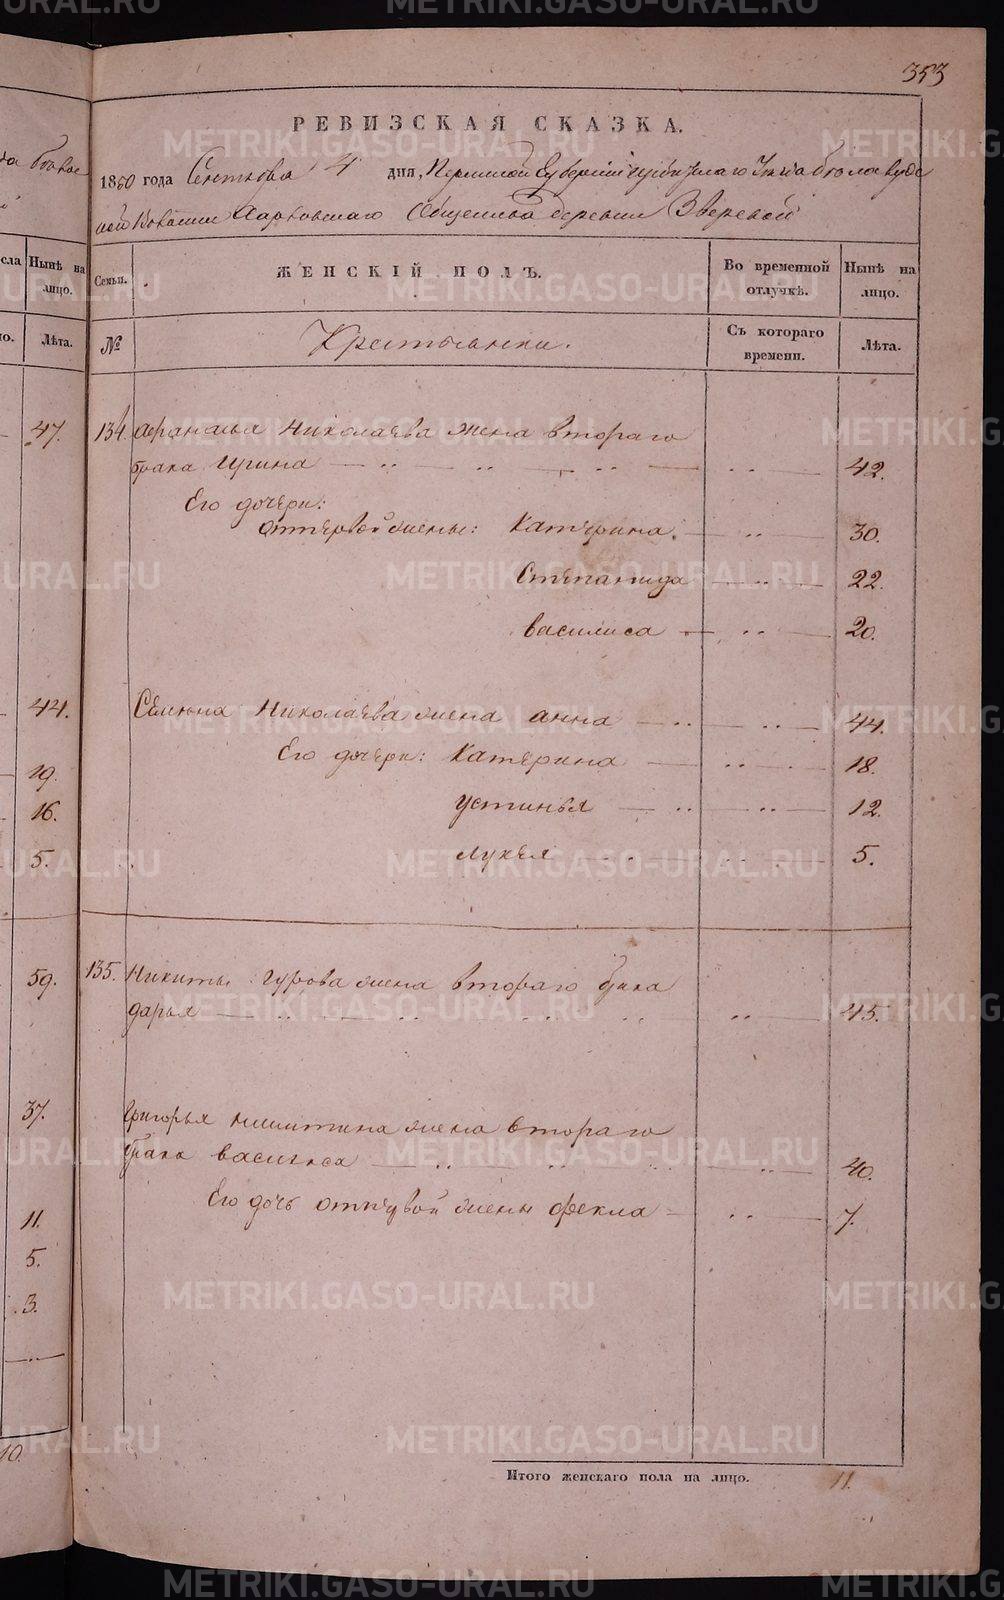 353
РЕВИЗСКАЯ СКАЗКА.
1850 года Сентября 4 дня, Пермской Губернии
Общества деревни Зверевой
сла Нынѣ на лицо.
Лѣта.
Семьи. ЖЕНСКІЙ ПОЛЪ. Во временной отлучкѣ. Нынѣ на лицо.
№ Крестьянки. Съ котораго времени. Лѣта.
47. 134. Афанасья Николаева жена втораго
брака Ирина 42.
Его дочери:
от первой жены: Катерина. 30.
Степанида 22.
Василиса 20.
44. Семёна Николаева жена Анна 44.
19. Его дочери: Катерина 18.
16. Устинья 12.
5. Лукея 5.
59. 135. Никиты Гурова жена втораго брака
Дарья 45.
37. Григорья Никитина жена втораго
брака Василиса 40.
11. Его дочь от первой жены Фекла 7.
5.
3.
10.
Итого женскаго пола на лицо. 11.
METRIKI.GASO-URAL.RU